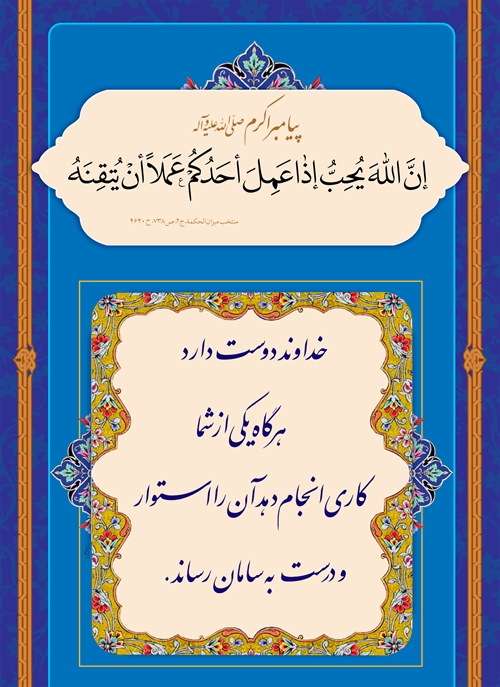 پیامبر اکرم صلّی الله علیه وآله
إنَّ اللهَ يُحِبُّ إذا عَمِلَ أحَدُكُمْ عَمَلاً أنْ يُتْقِنَهُ
منتخب میزان الحکمة، ج۲، ص۷۳۸، ح۴۶۴۰
خداوند دوست دارد
هرگاه یکی از شما
کاری انجام دهد آن را استوار
و درست به سامان رساند.